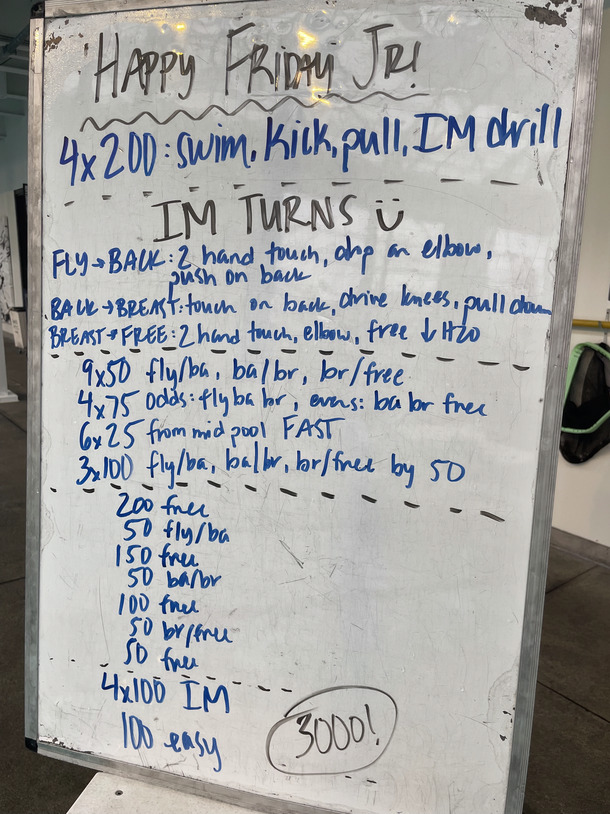 HAPPY FRIDAY JR!
4x200: swim, kick, pull, IM drill
IM TURNS Ü
FLY→BACK: 2 hand touch, drop an elbow,
push on back
BACK→BREAST: touch on back, drive knees, pull down
BREAST→FREE: 2 hand touch, elbow, free ↓ H2O
9x50 fly/ba, ba/br, br/free
4x75 odds: fly ba br, evens: ba br free
6x25 from mid pool FAST
3x100 fly/ba, ba/br, br/free by 50
200 free
50 fly/ba
150 free
50 ba/br
100 free
50 br/free
50 free
4x100 IM
100 easy
3000!